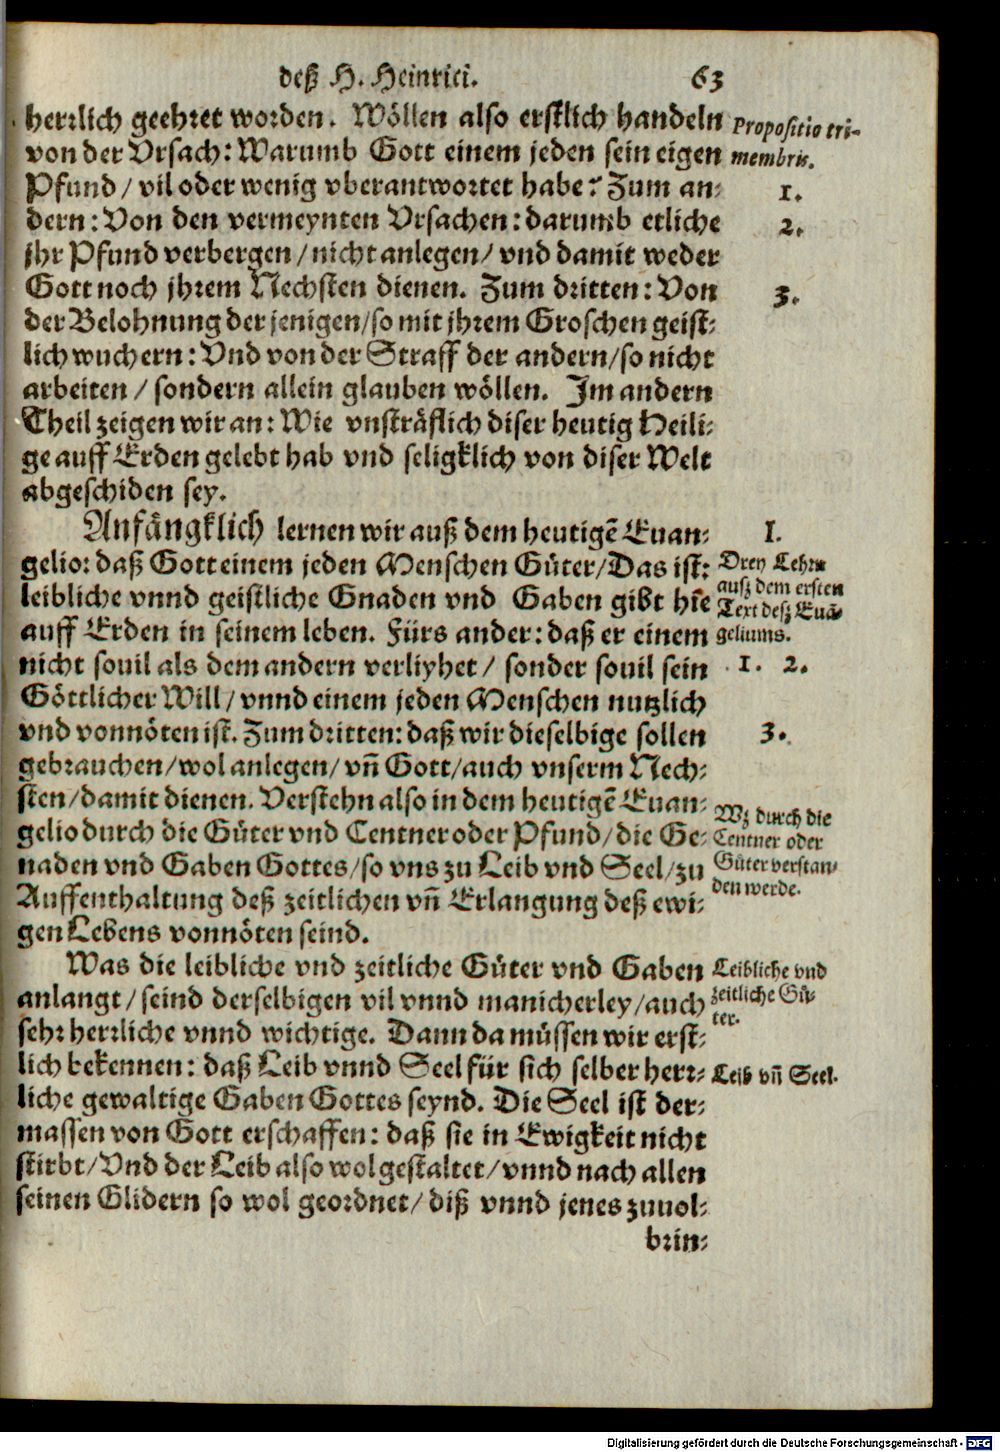 deß H. Heinrici. 63
herrlich geehret worden. Wöllen also erstlich handeln
von der Vrsach: Warumb Gott einem jeden sein eigen
Pfund/ vil oder wenig vberantwortet habe? Zum an-
dern: Von den vermeynten Vrsachen: darumb etliche
jhr Pfund verbergen/ nicht anlegen/ vnd damit weder
Gott noch jhrem Nechsten dienen. Zum dritten: Von
der Belohnung der jenigen/ so mit jhrem Groschen geist-
lich wuchern: Vnd von der Straff der andern/ so nicht
arbeiten/ sondern allein glauben wöllen. Im andern
Theil zeigen wir an: Wie vnsträflich diser heutig Heili-
ge auff Erden gelebt hab vnd seligklich von diser Welt
abgeschiden sey.
Propositio tri-
membris.
1.
2.
3.
Anfängklich lernen wir auß dem heutigē Euan-
gelio: daß Gott einem jeden Menschen Güter/ Das ist:
leibliche vnnd geistliche Gnaden vnd Gaben gibt hie
auff Erden in seinem leben. Fürs ander: daß er einem
nicht souil als dem andern verliyhet/ sonder souil sein
Göttlicher Will/ vnnd einem jeden Menschen nutzlich
vnd vonnöten ist. Zum dritten: daß wir dieselbige sollen
gebrauchen/ wol anlegen/ vñ Gott/ auch vnserm Nech-
sten/ damit dienen. Verstehn also in dem heutigē Euan-
gelio durch die Güter vnd Centner oder Pfund/ die Ge-
naden vnd Gaben Gottes/ so vns zu Leib vnd Seel/ zu
Auffenthaltung deß zeitlichen vñ Erlangung deß ewi-
gen Lebens vonnöten seind.
I.
Drey Lehrn
auß dem ersten
Text deß Euā-
geliums.
1. 2.
3.
Wz durch die
Centner oder
Güter verstan-
den werde.
Was die leibliche vnd zeitliche Güter vnd Gaben
anlangt/ seind derselbigen vil vnnd manicherley/ auch
sehr herrliche vnnd wichtige. Dann da müssen wir erst-
lich bekennen: daß Leib vnnd Seel für sich selber herr-
liche gewaltige Gaben Gottes seynd. Die Seel ist der-
massen von Gott erschaffen: daß sie in Ewigkeit nicht
stirbt/ Vnd der Leib also wol gestaltet/ vnnd nach allen
seinen Glidern so wol geordnet/ diß vnnd jenes zuuol-
brin-
Leibliche vnd
zeitliche Gü-
ter.
Leib vñ Seel.
Digitalisierung gefördert durch die Deutsche Forschungsgemeinschaft - DFG